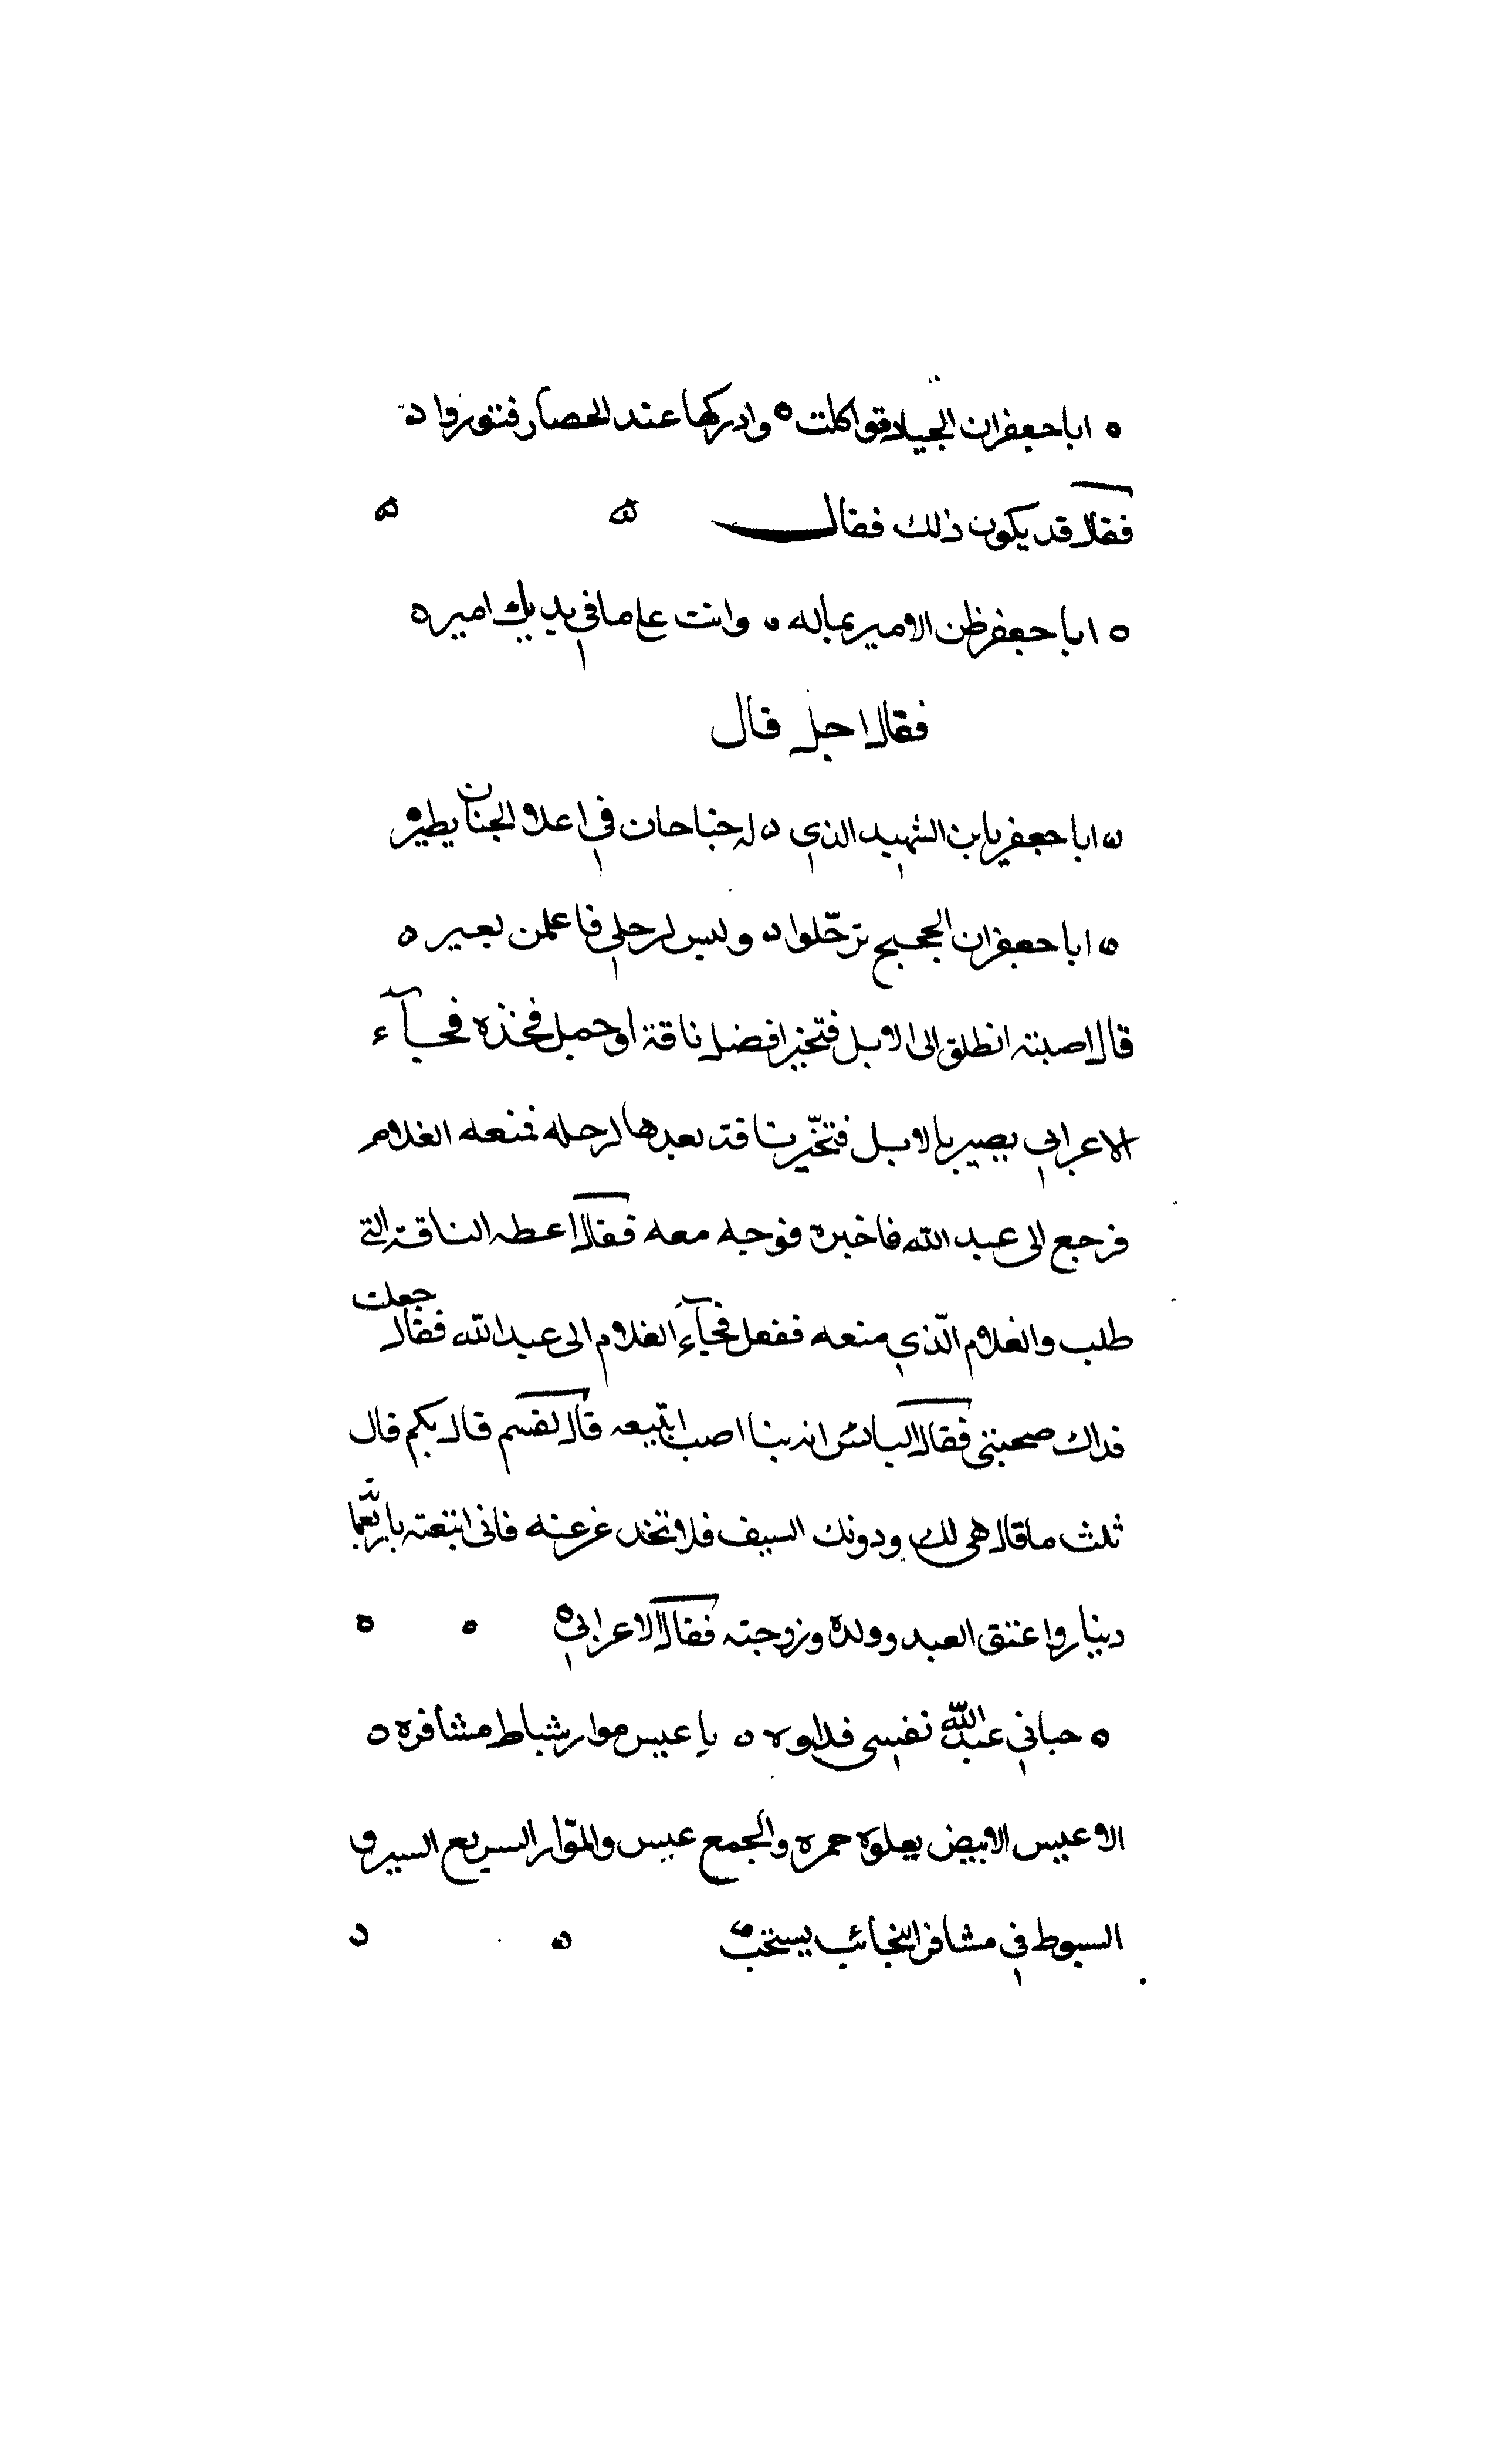 ه اباجعفر ان الجياد قواكلت ه وادركها عند الحصار فتور واد
فقال قد يكون ذلك فقال ه ه
ه اباجعفر ظن الامير بماله ه وانت علي ما في يديك امير ه
فقال اجل قال
ه اباجعفر يابن الشهيد الذي ه له جناحان في اعلا الجنان يطير ه
ه اباجعفر ان الحجيج ترحّلوا ه وليس لرحلي فاعلمن بعير ه
قال اصبته انطلق الى الابل فتخير افضل ناقة او جمل فخذه فجآء
الاعرابي بصير بالابل فتخّير ناقة يعدها لرحله فمنعه الغلام
فرجع الى عبد الله فاخبره فوجه معه فقال اعطه الناقة التي
طلب والغلام الّذي منعه ففعل فجآء الغلام الى عبد الله فقال جعلت
فداك صحبتى فقال البائس انه بنا اصب اتبيعه قال نعم قال بكم قال
ثلث ما قال هى لك ودونك السيف فلا تخدعن عنه فانى ابتعته باربعما
دينار واعتق العبد وولده وزوجته فقال الاعرابي ه ه
ه حباني عبد الله نفسي فداوه ه باعيس موار شباط مشافره ه
الاعيس الابيض يعلوه حمره والجمع عيس والموّار السريع السير و
السبوط في مشافر النجائب يستحب ه ه